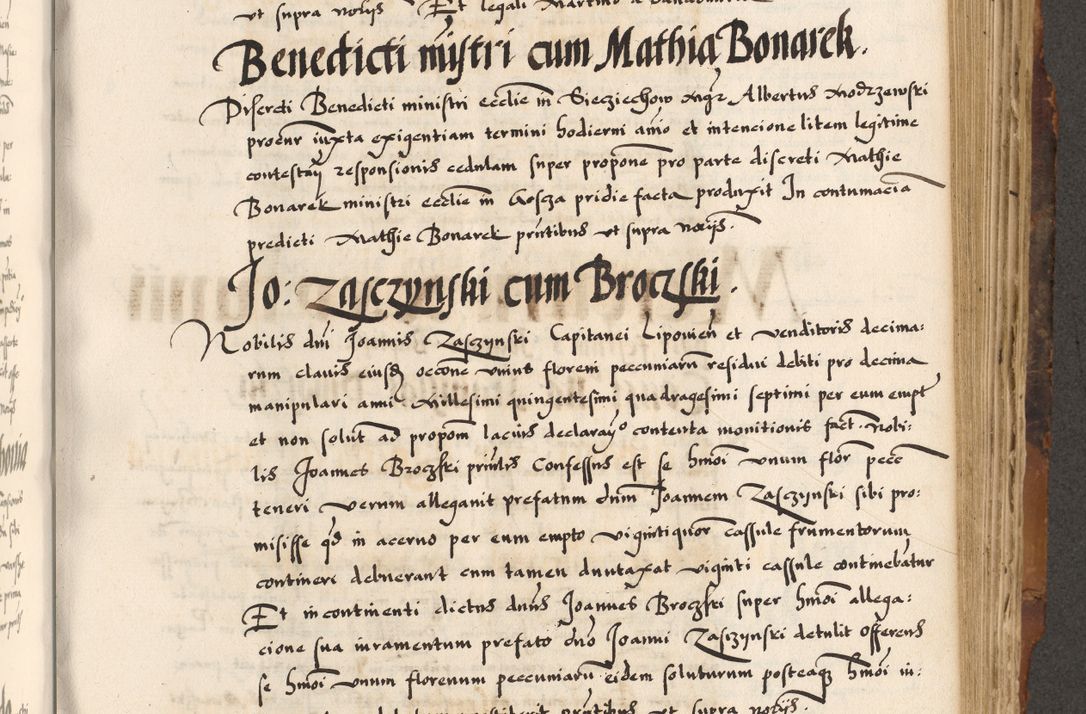 vt supra notijs Et legali Martino a
Benedicti mistri cum Mathia Bonarek.
Discreti Benedicti ministri ecclie in Sieciechow mgr Albertus Modrzewski
procur iuxta exigentiam termini hodierni animo et intencione litem legitime
contestan responsionis cedulam super propone pro parte discreti Mathie
Bonarek ministri ecclie in Gosza pridie facta produxit In contumacia
predicti Mathie Bonarek pntibus vt supra notijs.
Jo: Zasczynski cum Broczski.
Nobilis dni Joannis Zasczynski Capitanei Lipovien et venditoris decima:
rum clauis eiusd occone vnius floreni peccuniarum residui debiti pro decima
manipulari anni Millesimi quingentesimi quadragesimi septimi per eum empt
et non solut ad propom lacius declarando contenta monitionis fact Nobi:
lis Joannes Broczski pnlis Confessus est se hmoi vnum flor pecc
teneri verum allegauit prefatum dnm Joannem Zasczynski sibi pro:
misisse qd in aceruo per eum empto vigintiquor cassule frumentorum
contineri debuerant cum tamen duntaxat viginti cassule continebatur
Et incontinenti dictus dnus Joannes Broczski super hmoi allega:
cione sua iuramentum prefato dno Joanni Zasczynski detulit Offerens
se hmoi vnum florenum peccuniarum eidem soluturum posteaq hmoi iu:
pntibus vt supra notijs.